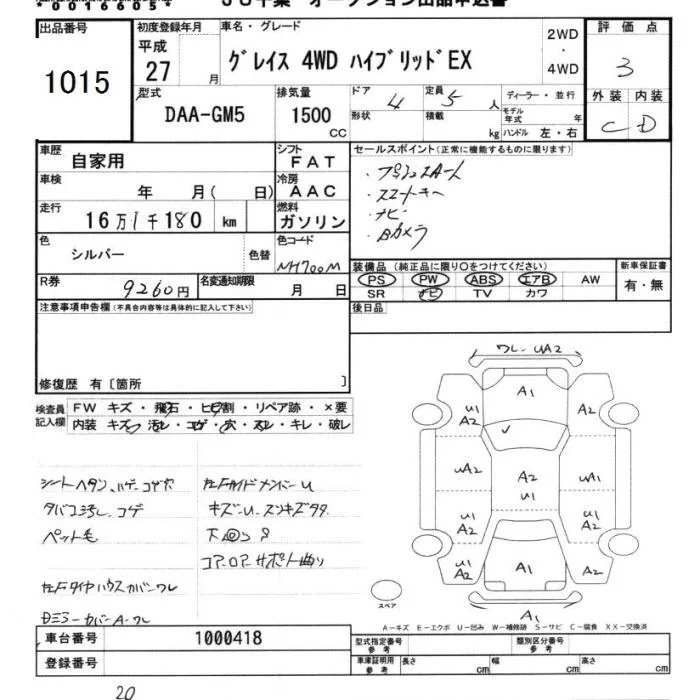 出品番号
1015
初度登録年月
平成
27 月
車名・グレード
グレイス 4WD ハイブリッドEX
2WD
・
4WD
評価点
3
外装 内装
C D
型式
DAA-GM5
排気量
1500
CC
ドア 4
形状
定員 5 人
積載 kg
ディーラー・並行
モデル年式 年
ハンドル 左・右
車歴 自家用
シフト FAT
車検 年 月( 日)
冷房 AAC
走行 16万1千180 km
燃料 ガソリン
色 シルバー 色替
色コード NH700M
R券 9260円
名変通知期限 月 日
セールスポイント(正常に機能するものに限ります)
・プッシュスタート
・スマートキー
・ナビ
・Bカメラ
装備品(純正品に限り〇をつけてください)
PS PW ABS エアB AW
SR ナビ TV カワ
新車保証書
有・無
後日品
注意事項申告欄(不具合内容等は具体的に記入して下さい)
修復歴 有〔箇所 〕
検査員
記入欄
FW キズ・飛石・ヒビ割・リペア跡・×要
内装 キズ・汚レ・コゲ・穴・スレ・キレ・破レ
シートヘタリ、ハゲ、コゲ穴
タバコ汚レ、コゲ
ペット毛
左Fタイヤハウスカバーワレ
キズ
コアロアサポート曲り
ワレ・UA2
A1
U1
A2
A2
UA2
A2
U1
UA1
U1
A2
U1
A2
U1
A2
A1
A2
A1
スペア
A-キズ E-エクボ U-凹み W-補修跡 S-サビ C-腐食 XX-交換済
車台番号 1000418
登録番号
型式指定番号
参考
類別区分番号
参考
車庫証明用
参考
長さ cm 幅 cm 高さ cm
20